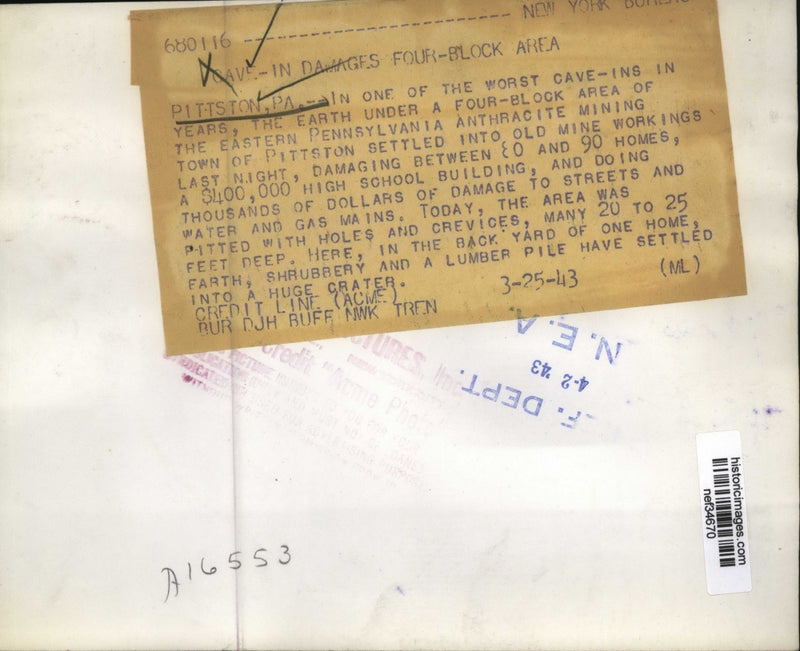 680116 ---------------------------- NEW YORK BUREAU
CAVE-IN DAMAGES FOUR-BLOCK AREA
PITTSTON, PA.--IN ONE OF THE WORST CAVE-INS IN
YEARS, THE EARTH UNDER A FOUR-BLOCK AREA OF
THE EASTERN PENNSYLVANIA ANTHRACITE MINING
TOWN OF PITTSTON SETTLED INTO OLD MINE WORKINGS
LAST NIGHT, DAMAGING BETWEEN 80 AND 90 HOMES,
A $400,000 HIGH SCHOOL BUILDING, AND DOING
THOUSANDS OF DOLLARS OF DAMAGE TO STREETS AND
WATER AND GAS MAINS. TODAY, THE AREA WAS
PITTED WITH HOLES AND CREVICES, MANY 20 TO 25
FEET DEEP. HERE, IN THE BACK YARD OF ONE HOME,
EARTH, SHRUBBERY AND A LUMBER PILE HAVE SETTLED
INTO A HUGE CRATER.
CREDIT LINE (ACME) 3-25-43 (ML)
BUR DJH BUFF NWK TREN
PICTURES, Inc.
Credit "Acme Photo"
N.E.A.
4-2 '43
F. DEPT.
historicimages.com
nef34670
A16553